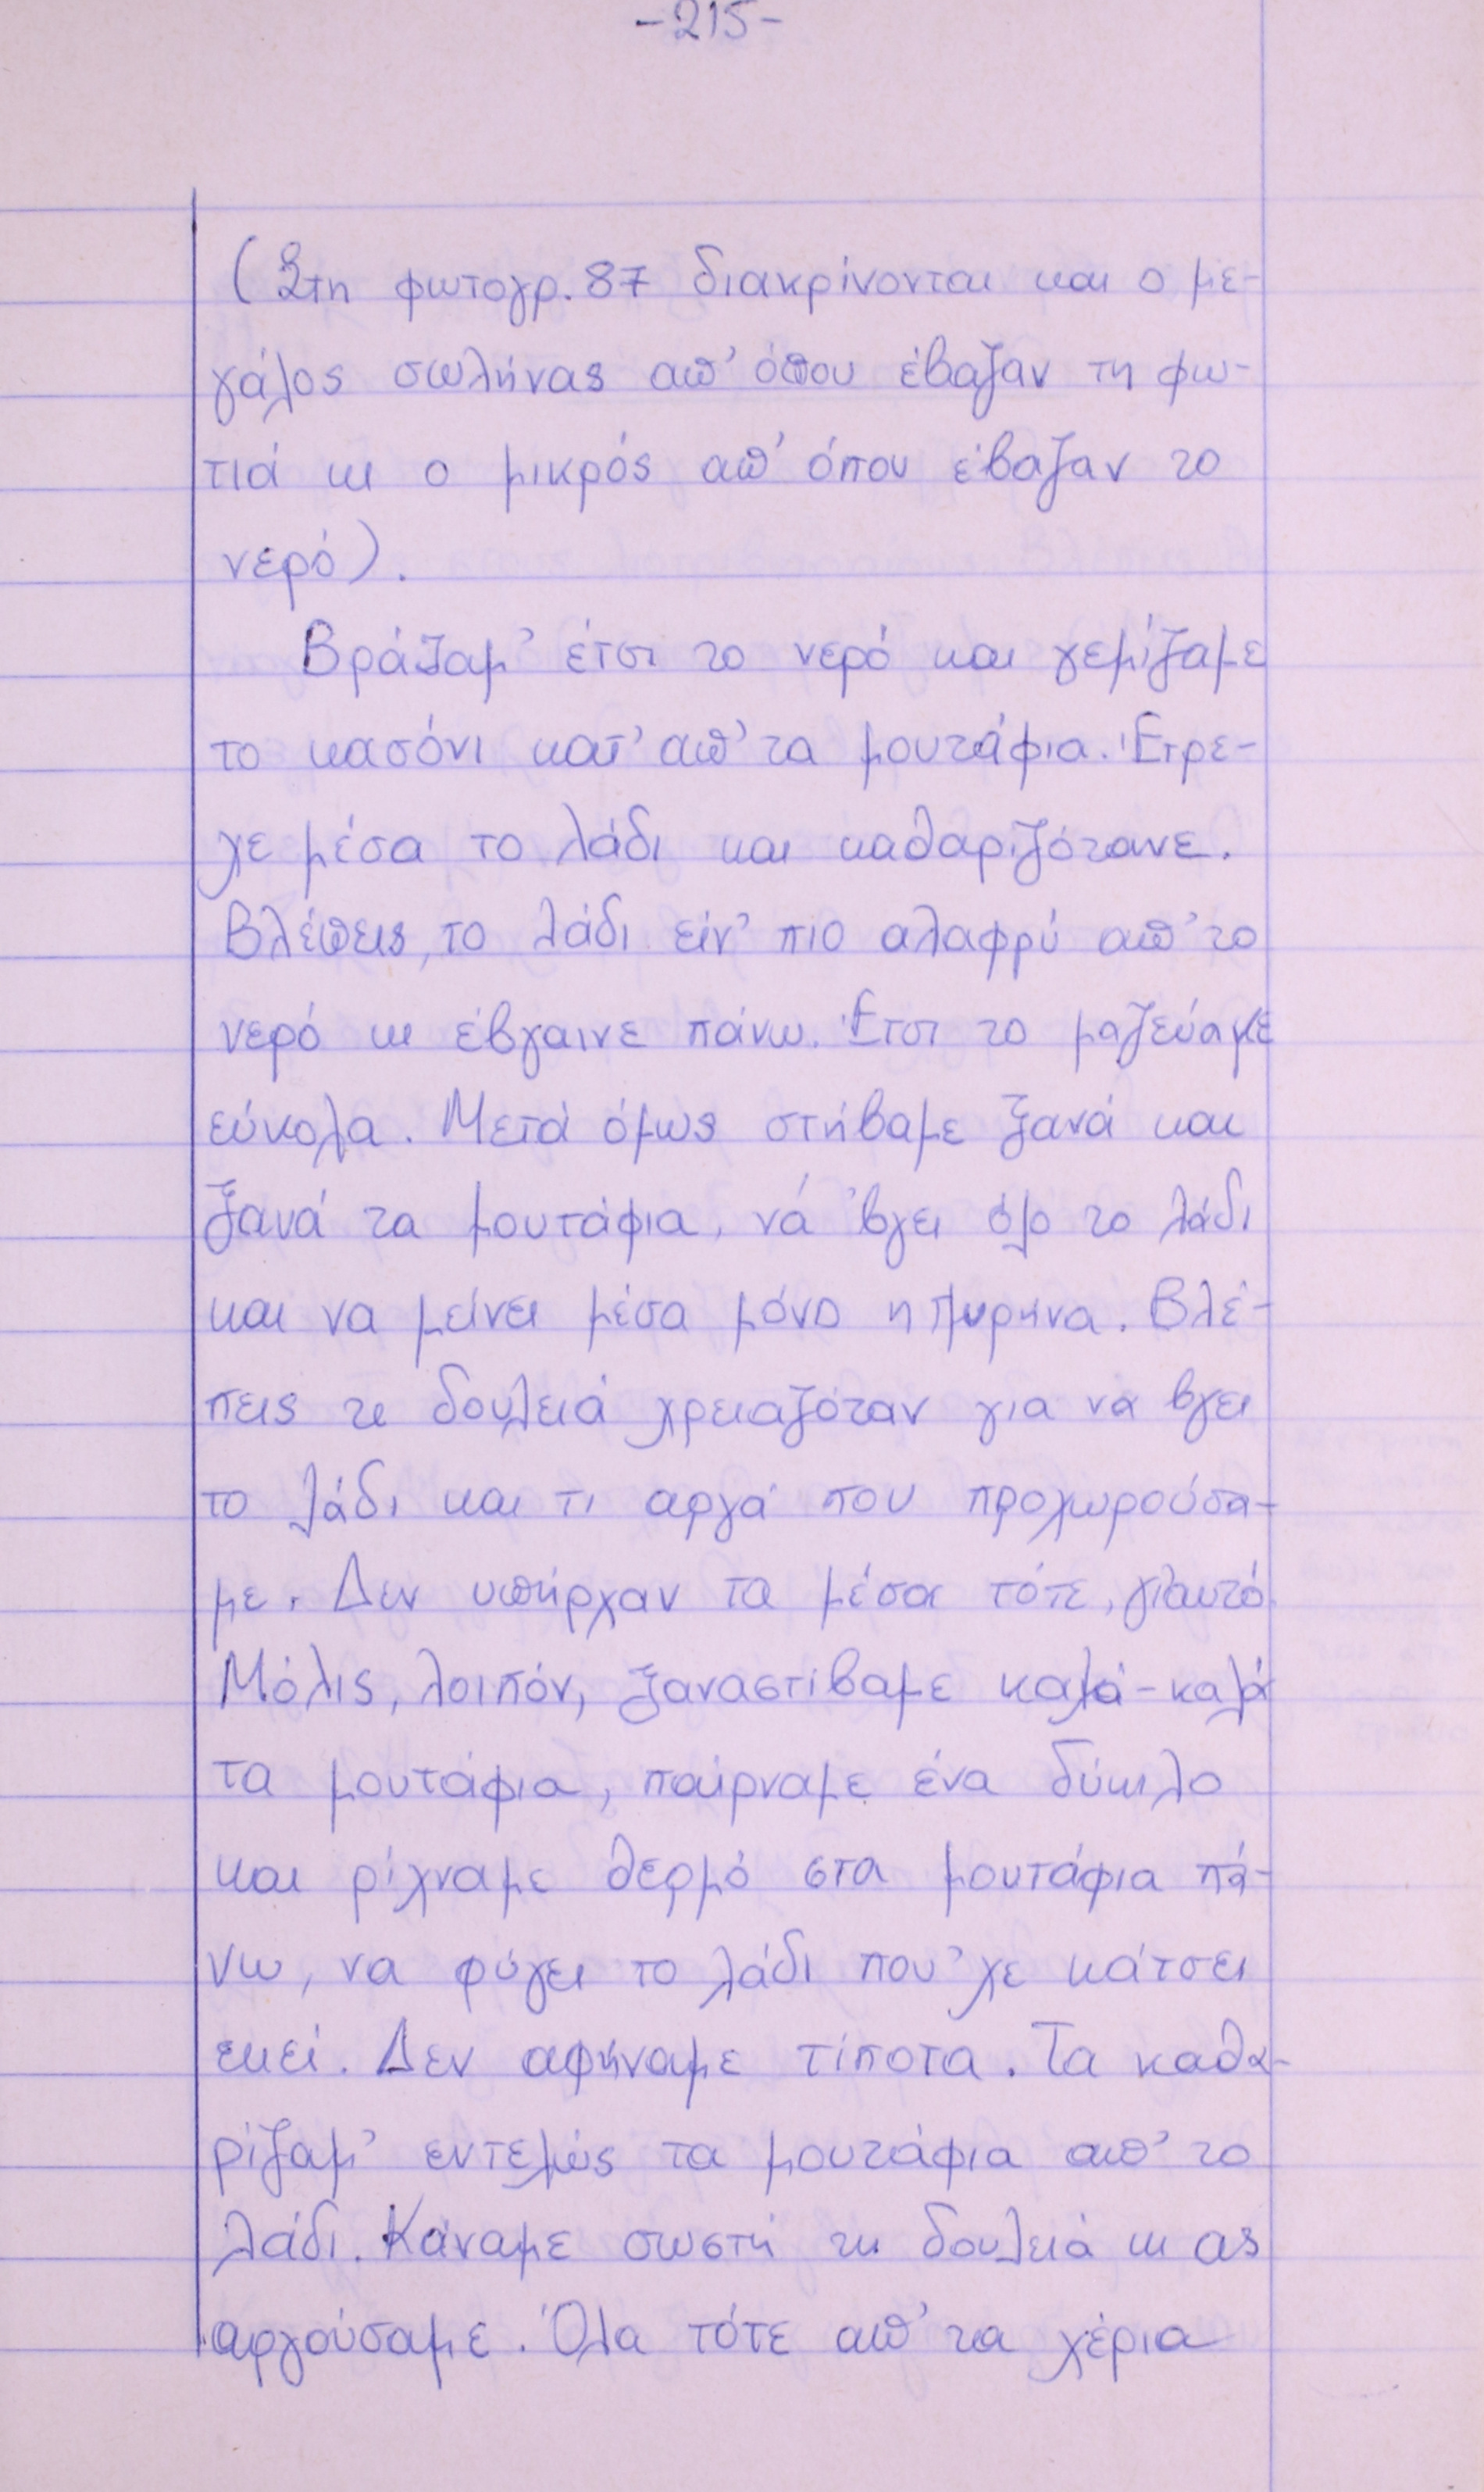 -215-
(Στη φωτογρ. 87 διακρίνονται και ο με-
γάλος σωλήνας απ' όπου έβαζαν τη φω-
τιά κι ο μικρός απ' όπου έβαζαν το
νερό).
Βράζαμ' έτσι το νερό και γεμίζαμε
το κασόνι κατ' απ' τα μουτάφια. Έτρε-
χε μέσα το λάδι και καθαριζότανε.
Βλέπεις, το λάδι είν' πιο αλαφρύ απ' το
νερό κι έβγαινε πάνω. Έτσι το μαζεύαμε
εύκολα. Μετά όμως στήβαμε ξανά και
ξανά τα μουτάφια, νά 'βγει όλο το λάδι
και να μείνει μέσα μόνο η πυρήνα. Βλέ-
πεις τι δουλειά χρειαζόταν για να βγει
το λάδι και τι αργά που προχωρούσα-
με. Δεν υπήρχαν τα μέσα τότε, γι'αυτό.
Μόλις, λοιπόν, ξαναστίβαμε καλά-καλά
τα μουτάφια, παίρναμε ένα δύκιλο
και ρίχναμε θερμό στα μουτάφια πά-
νω, να φύγει το λάδι που 'χε κάτσει
εκεί. Δεν αφήναμε τίποτα. Τα καθα-
ρίζαμ' εντελώς τα μουτάφια απ' το
λάδι. Κάναμε σωστή τη δουλειά κι ας
αργούσαμε. Όλα τότε απ' τα χέρια